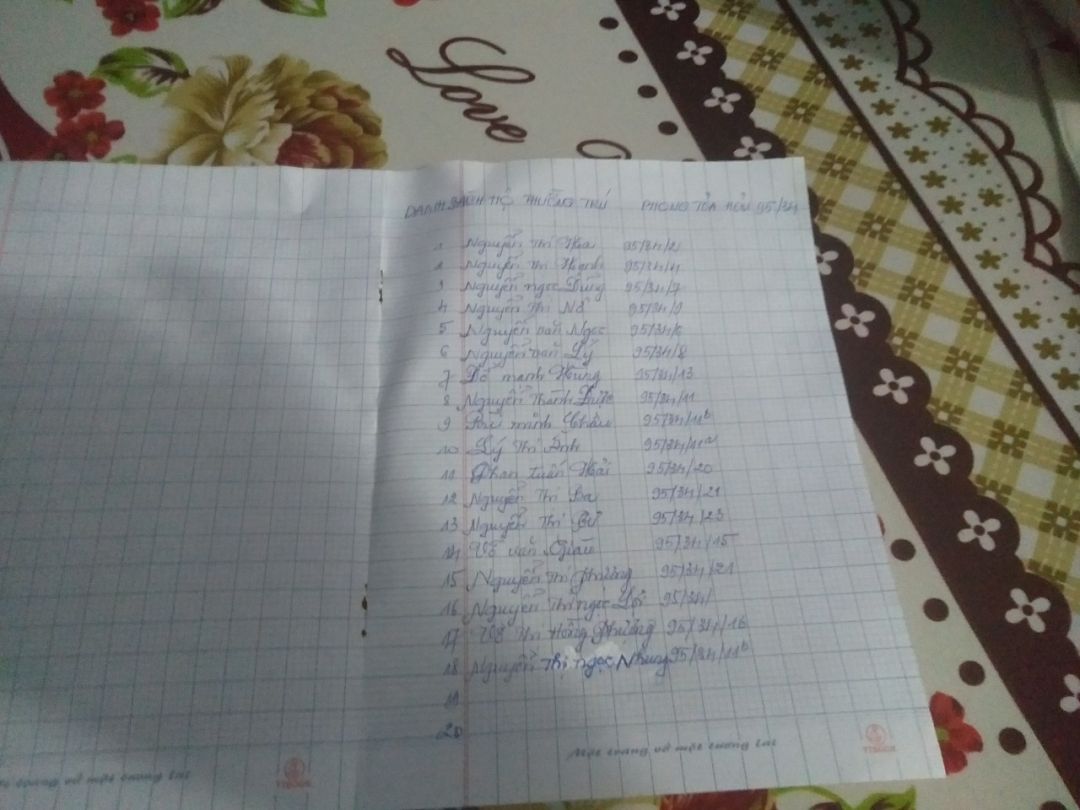 Love
DANH SÁCH HỘ THƯỜNG TRÚ PHONG TỎA HẺM 95/34
1 Nguyễn Thị Hoa 95/34/2
2 Nguyễn Thị Hạnh 95/34/4
3 Nguyễn ngọc Dũng 95/34/7
4 Nguyễn Thị Nở 95/34/9
5 Nguyễn văn Ngọc 95/34/6
6 Nguyễn văn Lý 95/34/8
7 Đỗ mạnh Hùng 95/34/13
8 Nguyễn Thành 95/34/11
9 minh Châu 95/34/11b
10 Lý Thị Ánh 95/34/11a
11 Phan tuấn Hải 95/34/20
12 Nguyễn Thị Ba 95/34/21
13 Nguyễn Thị 95/34/23
14 Võ văn Giàu 95/34/15
15 Nguyễn Thị Phượng 95/34/21
16 Nguyễn Thị ngọc 95/34/
17 Võ Thị Hồng Phượng 95/34/16
18 Nguyễn Thị Ngọc Nhung 95/34/11b
19
20